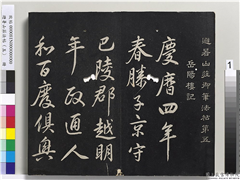 避暑山莊御筆法帖第五
岳陽樓記
慶曆四年
春滕子京守
巴陵郡越明
年政通人
和百廢俱興